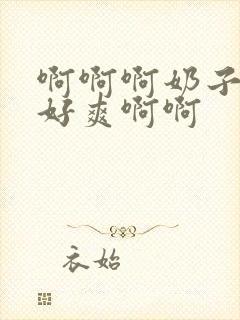 啊啊啊奶子
好爽啊啊
衣始